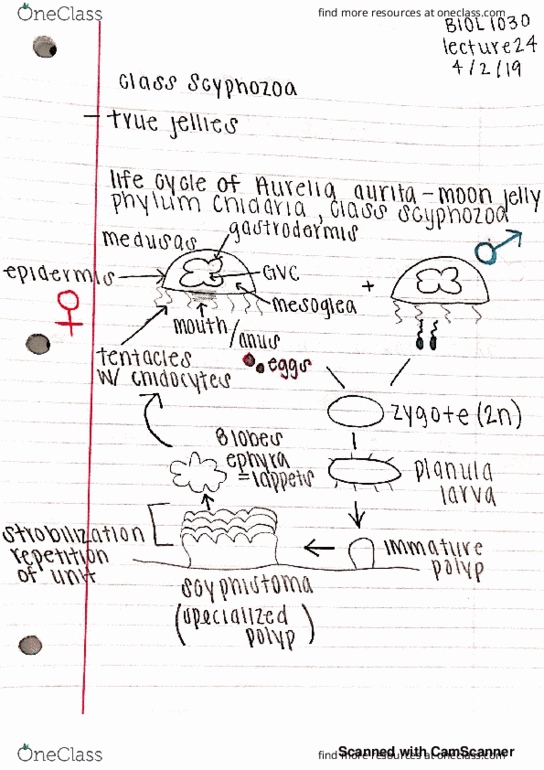 OneClass
find more resources at oneclass.com
BIOL 1030
lecture 24
4/2/19
class scyphozoa
- true jellies
life cycle of Aurelia aurita - moon jelly
phylum cnidaria, class scyphozoa
medusas
gastrodermis
epidermis
GVC
+
mesoglea
mouth/anus
tentacles
w/ cnidocytes
eggs
zygote (2n)
8 lobes
ephyra
=lappets
planula
larva
strobilization
repetition
of unit
immature
polyp
scyphistoma
(specialized
polyp)
OneClass
find more resources at oneclass.com
Scanned with CamScanner